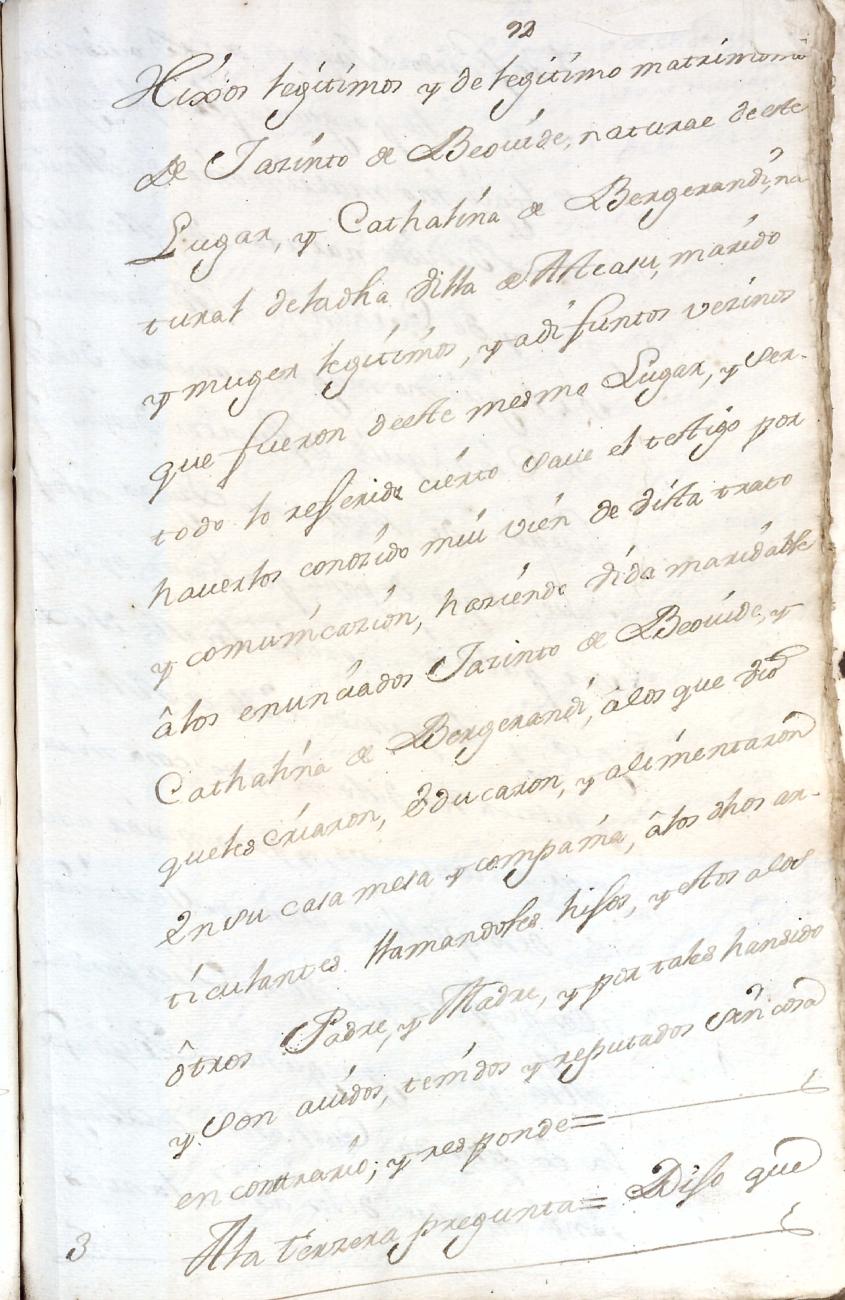 92
Hixos legitimos y de legitimo matrimonio
de Jazinto de Beovide, natural de este
Lugar, y Cathalina de Bergerandi, na
tural de la dha Villa de Alcasu, marido
y muger legitimos, y adifuntos vezinos
que fueron de este mesmo Lugar, y ser
todo lo referido cierto save el testigo por
haverlos conozido mui vien de vista trato
y comunicazion, haziendo vida maridable
â los enunciados Jazinto de Beovide, y
Cathalina de Bergerandi, âlos que vio
que les criaron, educaron, y alimentaron
En su casa mesa y compañia, âlos dhos ar-
ticulantes llamandoles hijos, y estos alos
ôtros Padre, y Madre, y por tales han sido
y son avidos, tenidos y reputados sin cosa
en contrario; y responde=
3 A la terzera pregunta= Dijo que